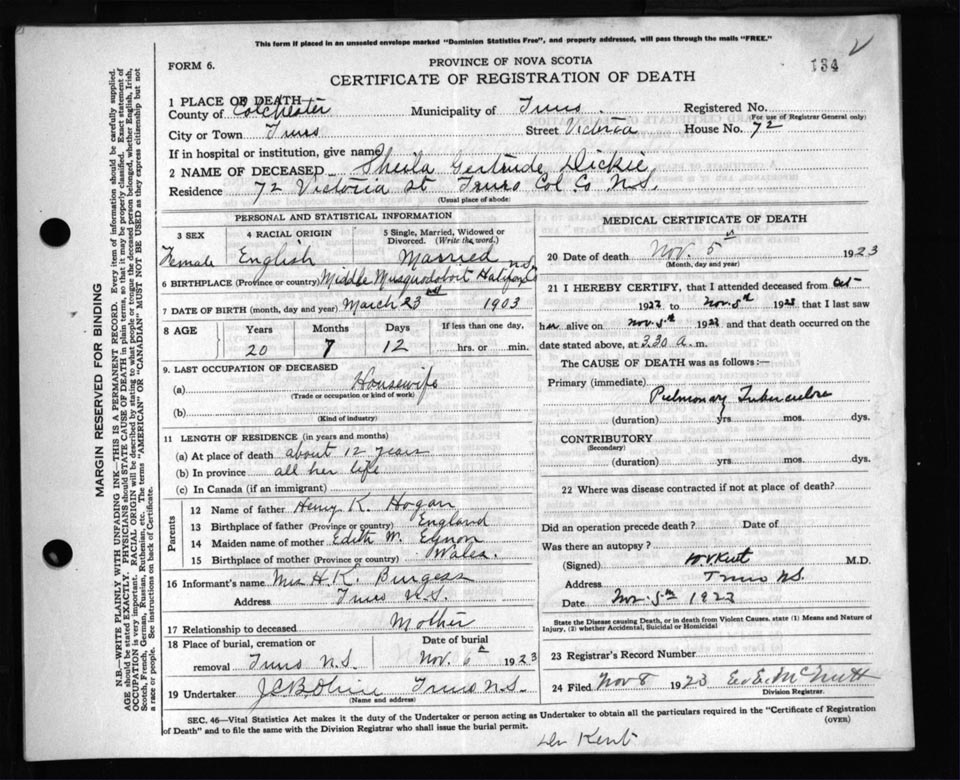 This form if placed in an unsealed envelope marked "Dominion Statistics Free", and properly addressed, will pass through the mails "FREE."
FORM 6.
PROVINCE OF NOVA SCOTIA
134
CERTIFICATE OF REGISTRATION OF DEATH
1 PLACE OF DEATH
County of Colchester Municipality of Truro. Registered No.
(For use of Registrar General only)
City or Town Truro Street Victoria House No. 72
If in hospital or institution, give name
2 NAME OF DECEASED Sheila Gertrude Dickie
Residence 72 Victoria St Truro Col Co N.S.
(Usual place of abode)
PERSONAL AND STATISTICAL INFORMATION
3 SEX 4 RACIAL ORIGIN 5 Single, Married, Widowed or Divorced. (Write the word.)
Female English Married
6 BIRTHPLACE (Province or country) Middle Musquodoboit Halifax Co N.S.
7 DATE OF BIRTH (month, day and year) March 23rd 1903
8 AGE Years Months Days If less than one day,
20 7 12 hrs. or min.
9. LAST OCCUPATION OF DECEASED
(a) Housewife
(Trade or occupation or kind of work)
(b)
(Kind of industry)
11 LENGTH OF RESIDENCE (in years and months)
(a) At place of death about 12 years
(b) In province all her life
(c) In Canada (if an immigrant)
Parents
12 Name of father Henry K. Hogan
13 Birthplace of father (Province or country) England
14 Maiden name of mother Edith M. Eynon
15 Birthplace of mother (Province or country) Wales.
16 Informant's name Mrs H.K. Burgess
Address Truro N.S.
17 Relationship to deceased Mother
18 Place of burial, cremation or removal Truro N.S. Date of burial Nov. 6th 1923
19 Undertaker Truro N.S.
(Name and address)
MEDICAL CERTIFICATE OF DEATH
20 Date of death Nov. 5th 1923
(Month, day and year)
21 I HEREBY CERTIFY, that I attended deceased from Oct-
1923 to Nov. 5th 1923 that I last saw
her alive on Nov. 5th 1923 and that death occurred on
date stated above, at 3.30 a.m.
The CAUSE OF DEATH was as follows:—
Primary (immediate)
Pulmonary Tuberculosis
(duration) yrs mos. dys.
CONTRIBUTORY
(Secondary)
(duration) yrs. mos. dys.
22 Where was disease contracted if not at place of death?
Did an operation precede death? Date of
Was there an autopsy?
(Signed) H V Kent M.D.
Address Truro N.S.
Date Nov. 5th 1923
State the Disease causing Death, or in death from Violent Causes, state (1) Means and Nature of
Injury, (2) whether Accidental, Suicidal or Homicidal
23 Registrar's Record Number
24 Filed Nov 8 1923 McNutt
Division Registrar.
SEC. 46—Vital Statistics Act makes it the duty of the Undertaker or person acting as Undertaker to obtain all the particulars required in the "Certificate of Registration
of Death" and to file the same with the Division Registrar who shall issue the burial permit.
(OVER)
Dr Kent
MARGIN RESERVED FOR BINDING
N.B.—WRITE PLAINLY WITH UNFADING INK—THIS IS A PERMANENT RECORD. Every item of information should be carefully supplied.
AGE should be stated EXACTLY. PHYSICIANS should STATE CAUSE OF DEATH in plain terms, so that it may be properly classified. Exact statement of
OCCUPATION is very important. RACIAL ORIGIN will be described by stating to what people or tongue the deceased person belonged, whether English, Irish,
Scotch, French, German, Russian, Ruthenian, etc. The terms "AMERICAN" OR "CANADIAN" MUST NOT BE USED as they express citizenship but not
a race or people. See instructions on back of Certificate.